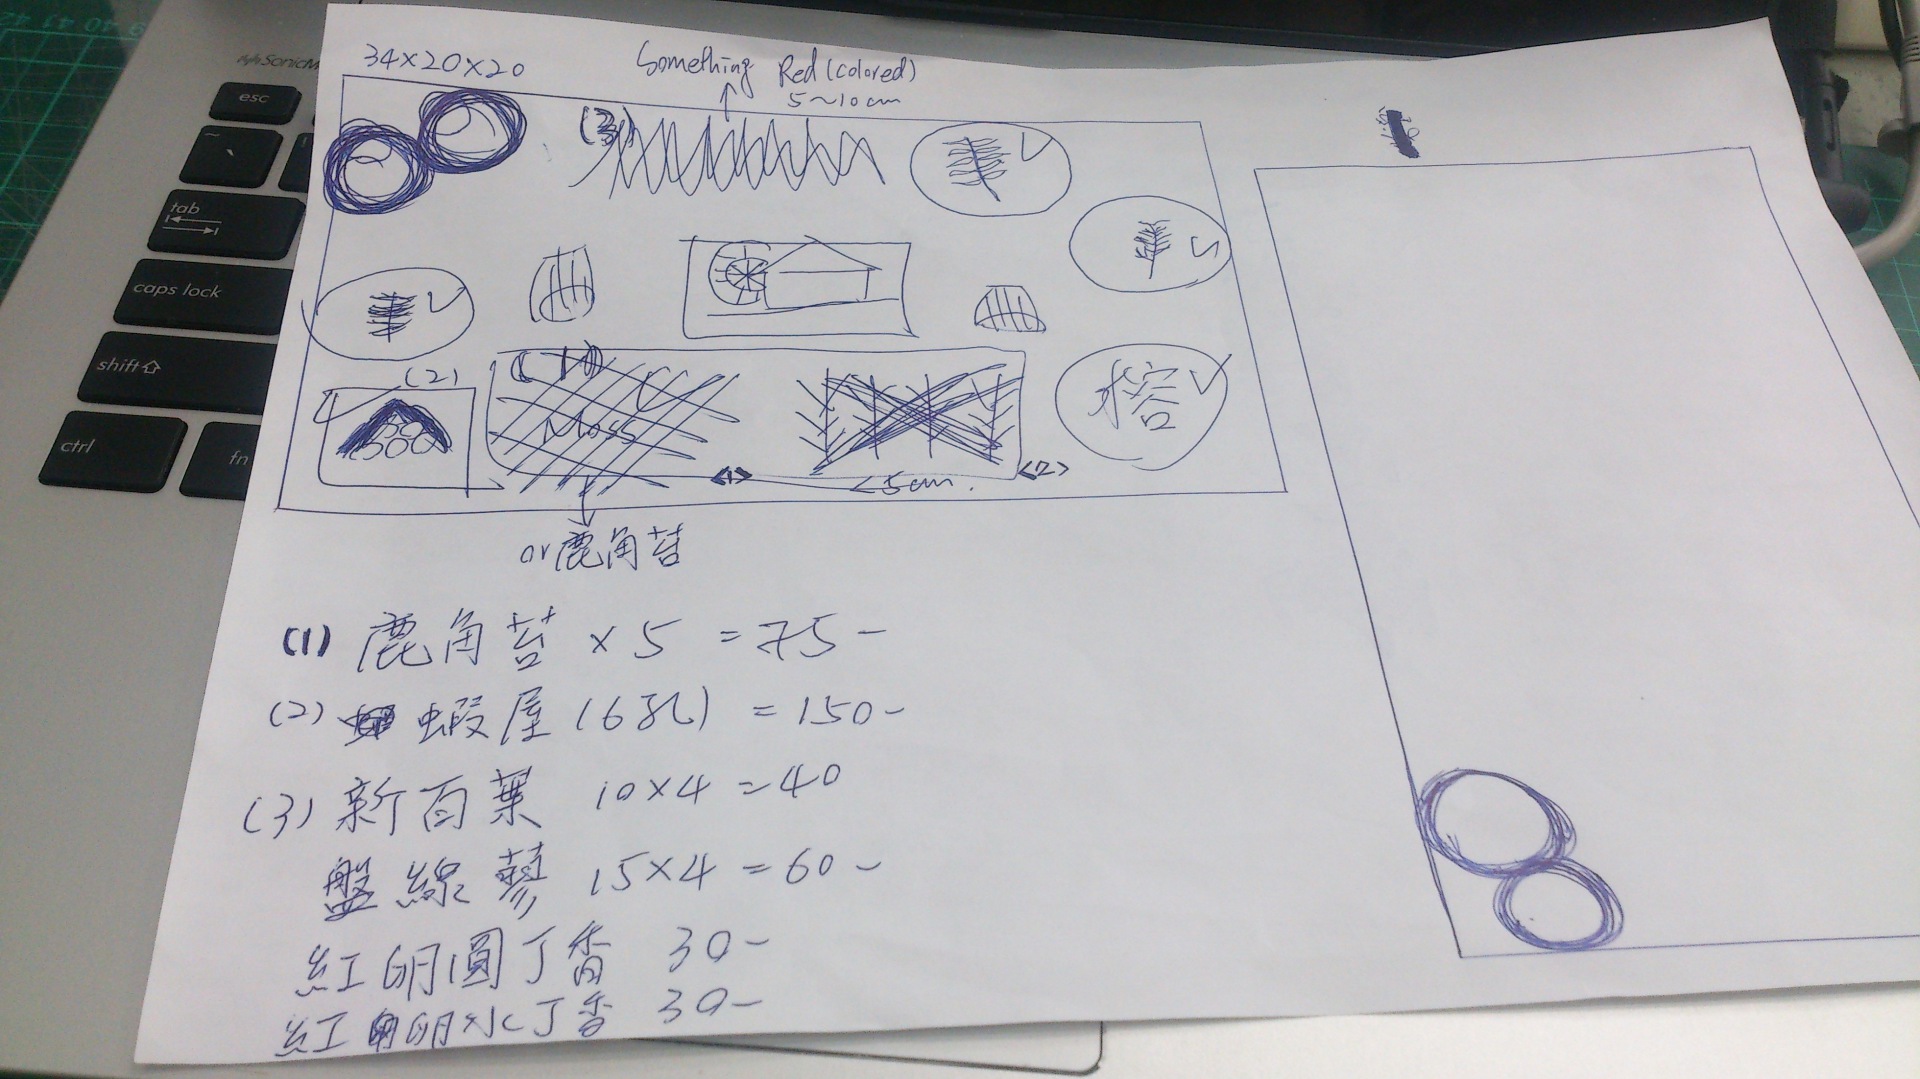 34×20×20
Something Red (colored)
5~10cm
(3)
(2)
Moss
榕
<1>
<5cm.
<2>
or鹿角苔
(1) 鹿角苔 × 5 = 75-
(2) 蝦屋 (6孔) = 150-
(3) 新百葉 10×4 = 40
盤線蓼 15×4 = 60-
紅卵圓丁香 30-
紅卵水丁香 30-
esc
tab
caps lock
shift
ctrl
fn